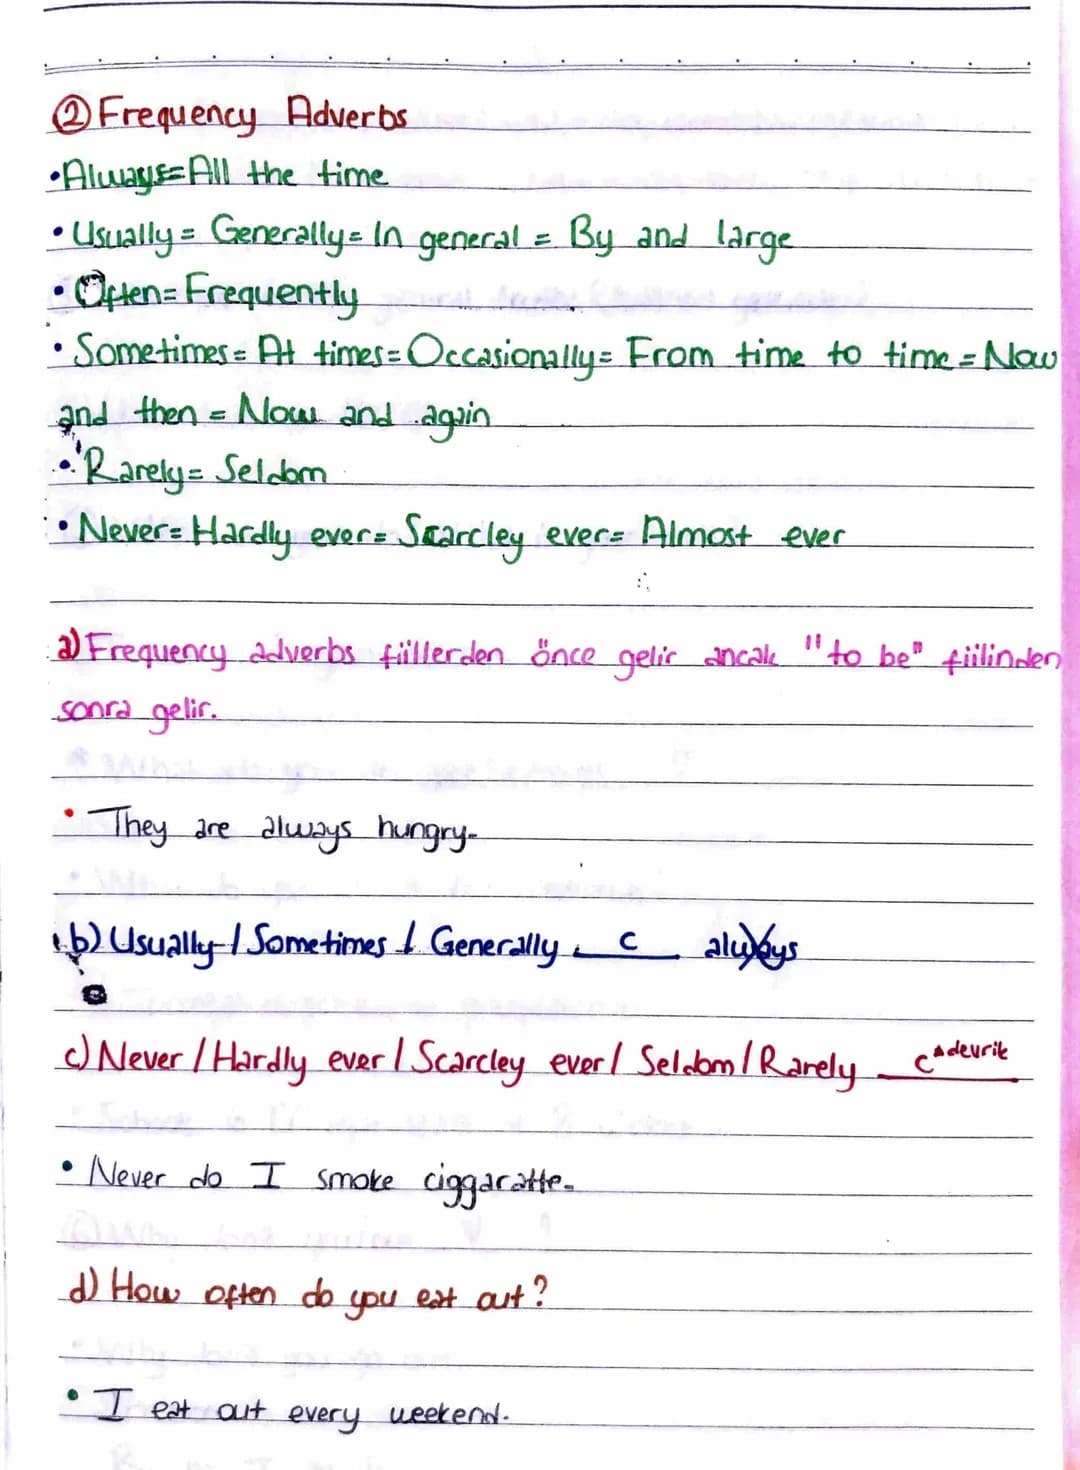 ② Frequency Adverbs
•Always=All the time
•Usually= Generally= In general = By and large
•Often=Frequently
•Sometimes= At times=Occasionally= From time to time = Now
and then = Now and again
•Rarely= Seldom
•Never= Hardly ever= Scarcley ever= Almost ever
a) Frequency adverbs fiillerden önce gelir ancak "to be" fiilinden
sonra gelir.
• They are always hungry.
b) Usually / Sometimes / Generally c always
c) Never / Hardly ever / Scarcley ever / Seldom / Rarely c devrik
• Never do I smoke ciggaratte.
d) How often do you eat out?
• I eat out every weekend.